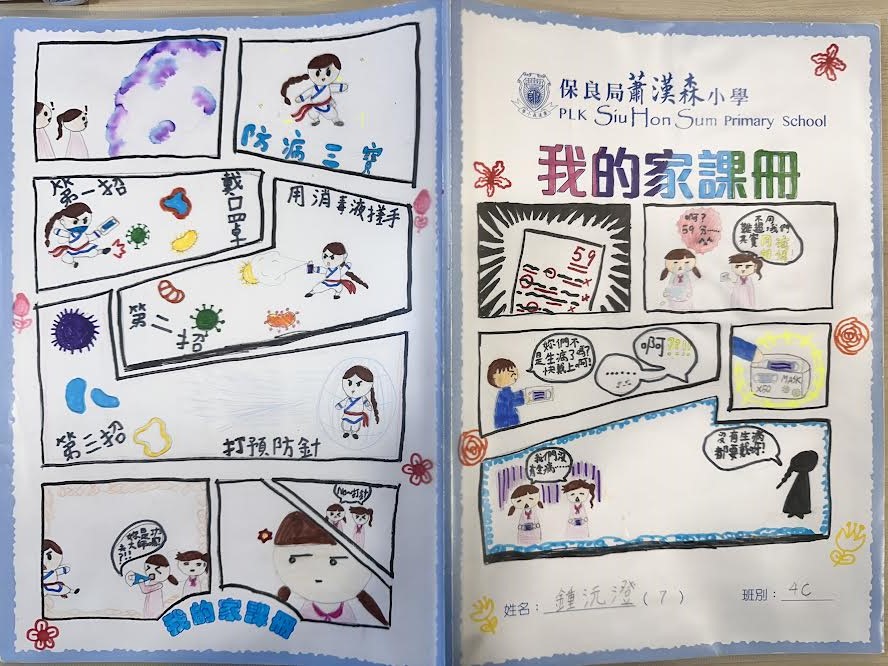 防病三寶
第一招
戴口罩
用消毒液搓手
第二招
第三招
打預防針
妳是功
夫大師嗎
?!!
No~打針
我的家課冊
保良局蕭漢森小學
PLK Siu Hon Sum Primary School
我的家課冊
59
啊?
59分......
不用
難過,我們
其實
妳們不
是生病了嗎?
快戴上啊!
......
MASK
X50
我們沒
有生病......
沒有生病
都要戴呀!
姓名：鍾沅澄（7） 班別：4C